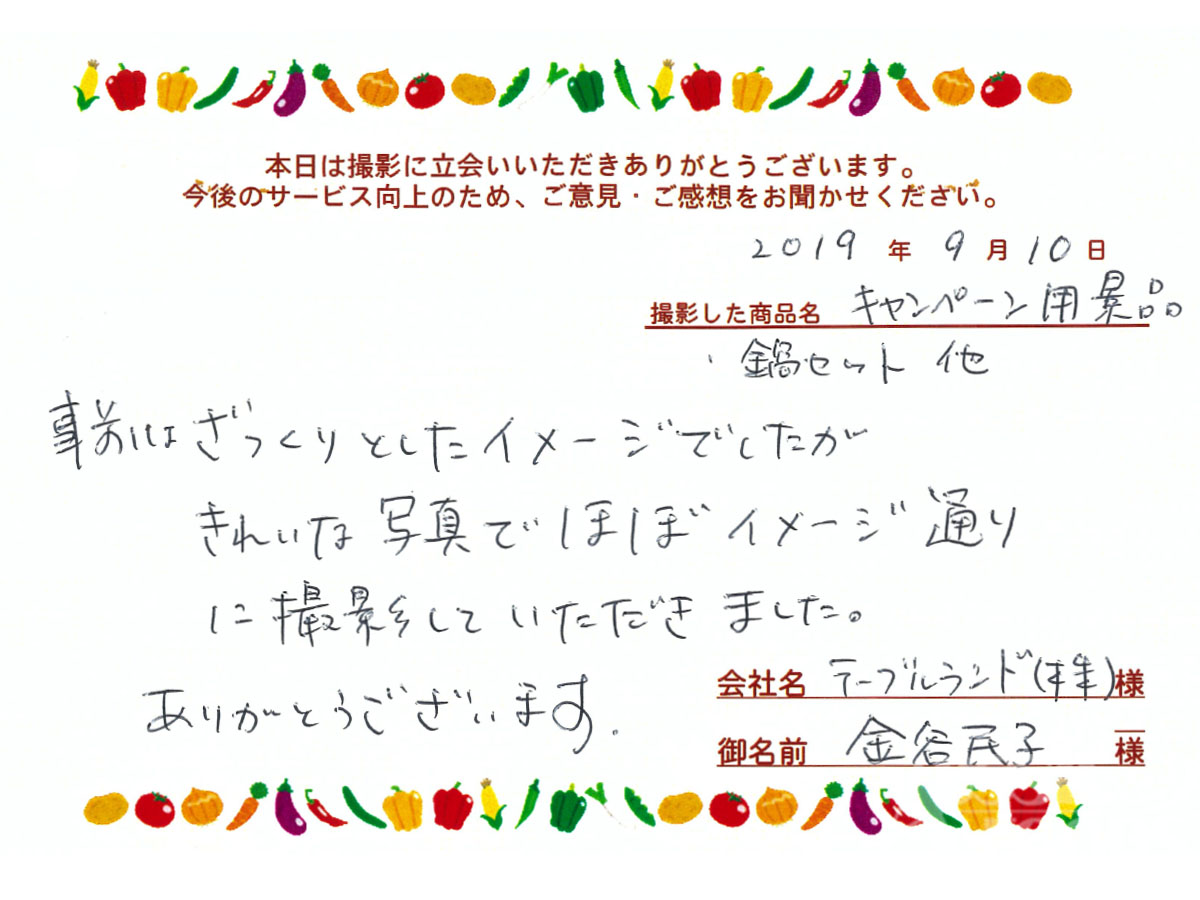 本日は撮影に立会いいただきありがとうございます。
今後のサービス向上のため、ご意見・ご感想をお聞かせください。
2019 年 9 月 10 日
撮影した商品名 キャンペーン用景品
・鍋セット 他
事前はざっくりとしたイメージでしたが
きれいな写真でほぼイメージ通り
に撮影していただきました。
ありがとうございます.
会社名 テーブルランド(株)様
御名前 金谷民子 様